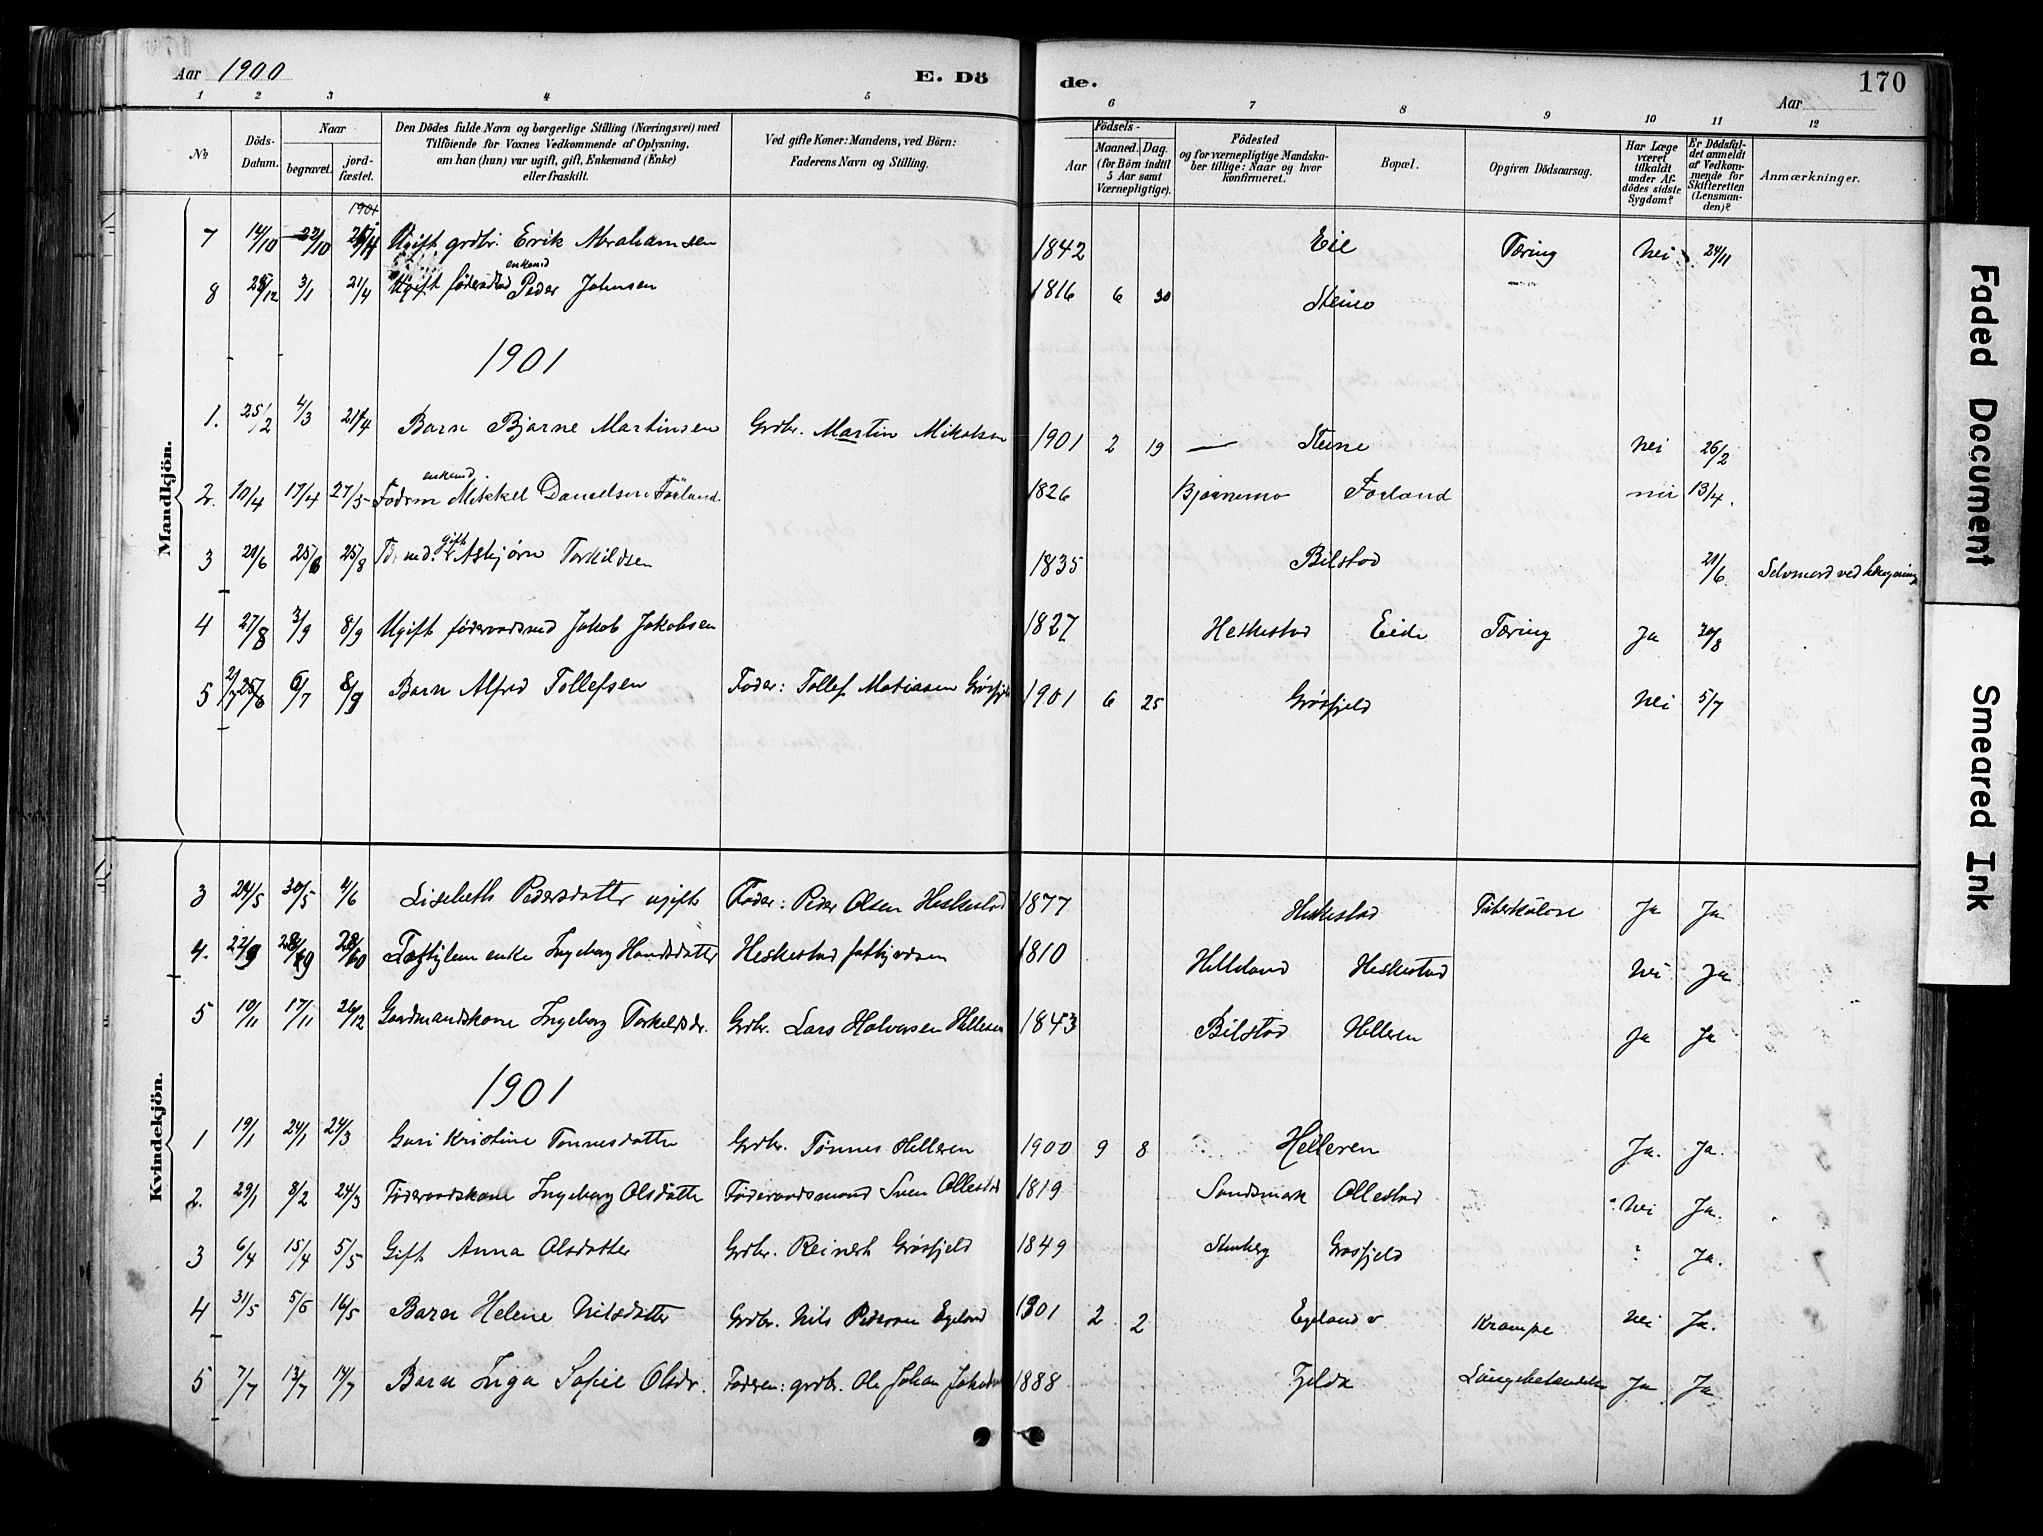 Aar 1900 E. Dö de. Aar 170
1 2 3 4 5 6 7 8 9 10 11 12
No Döds-Datum. Naar begravet. jordfæstet. Den Dödes fulde Navn og borgerlige Stilling (Næringsvei) med Tilföiende for Voxnes Vedkommende af Oplysning, om han (hun) var ugift, gift, Enkemand (Enke) eller fraskilt. Ved gifte Koner: Mandens, ved Börn: Faderens Navn og Stilling. Födsels- Aar Maaned. Dag. (for Börn indtil 5 Aar samt Værnepligtige). Födested og for værnepligtige Mandskaber tillige: Naar og hvor konfirmeret. Bopæl. Opgiven Dödsaarsag. Har Læge været tilkaldt under Afdödes sidste Sygdom? Er Dödsfaldet anmeldt af Vedkommende for Skifteretten (Lensmanden)? Anmærkninger.
Mandkjön.
1901
7 14/10 22/10 Ugift grdbr. Erik Abrahamsen 1842 Eie Tæring Nei 24/11
enkemd
8 28/12 3/1 21/4 Peder Johnsen 1816 6 30 Steine
1901
1. 25/2 4/3 21/4 Barn Bjarne Martinsen Grdbr. Martin Mikalsen 1901 2 19 — Steine Nei 26/2
enkemd
2. 10/4 17/4 27/5 Føderm Mikkel Danielsen Førland 1826 Bjørnemo Førland nei 13/4.
gift
3 20/6 25/6 25/8 Asbjørn Torkildsen 1835 Bilstad 21/6 Selvmord ved hængning
4 27/8 3/9 8/9 Ugift føderaadsmd Jakob Jakobsen 1827 Heskestad Eide Tæring Ja 30/8
5 6/7 8/9 Barn Alfred Tollefsen Fader: Tollef Matiasen Grøsfjeld 1901 6 25 Grøsfjeld Nei 5/7
Kvindekjön.
3 24/5 30/5 4/6 Lisebeth Pedersdatter ugift Fader: Peder Olsen Heskestad 1877 Heskestad Tuberkulose Ja Ja
4. 22/9 28/9 28/10 enke Ingeborg Hansdatter Heskestad fattigvæsen 1810 Helleland Heskestad Nei Ja
5 10/11 17/11 26/12 Gaardmandskone Ingeborg Torkeldsdr. Grdbr. Lars Halvorsen Helleren 1843 Bilstad Helleren Ja Ja
1901
1 19/1 24/1 24/3 Guri Kristine Tønnesdatter Grdbr. Tønnes Helleren 1900 9 8 Helleren Ja. Ja.
2. 29/1 8/2 24/3 Føderaadskone Ingeborg Olsdatter Føderaadsmand Sven Ollestad 1819 Sandsmark Ollestad Nei Ja.
3 6/4 15/4 5/5 Gift Anna Olsdatter Grdbr. Reinert Grøsfjeld 1849 Stenberg Grøsfjeld ? Ja.
4 31/5 5/6 16/5 Barn Helene Nilsdatter Grdbr. Nils Pedersen Egeland 1901 2 2 Egeland v Krampe Nei Ja.
5 7/7 13/7 14/7 Barn Inga Sofie Olsdr. Faderen: grdbr. Ole Johan Jakobsen 1888 Tjelda Lungebetændelse Ja Ja
Faded Document
Smeared Ink